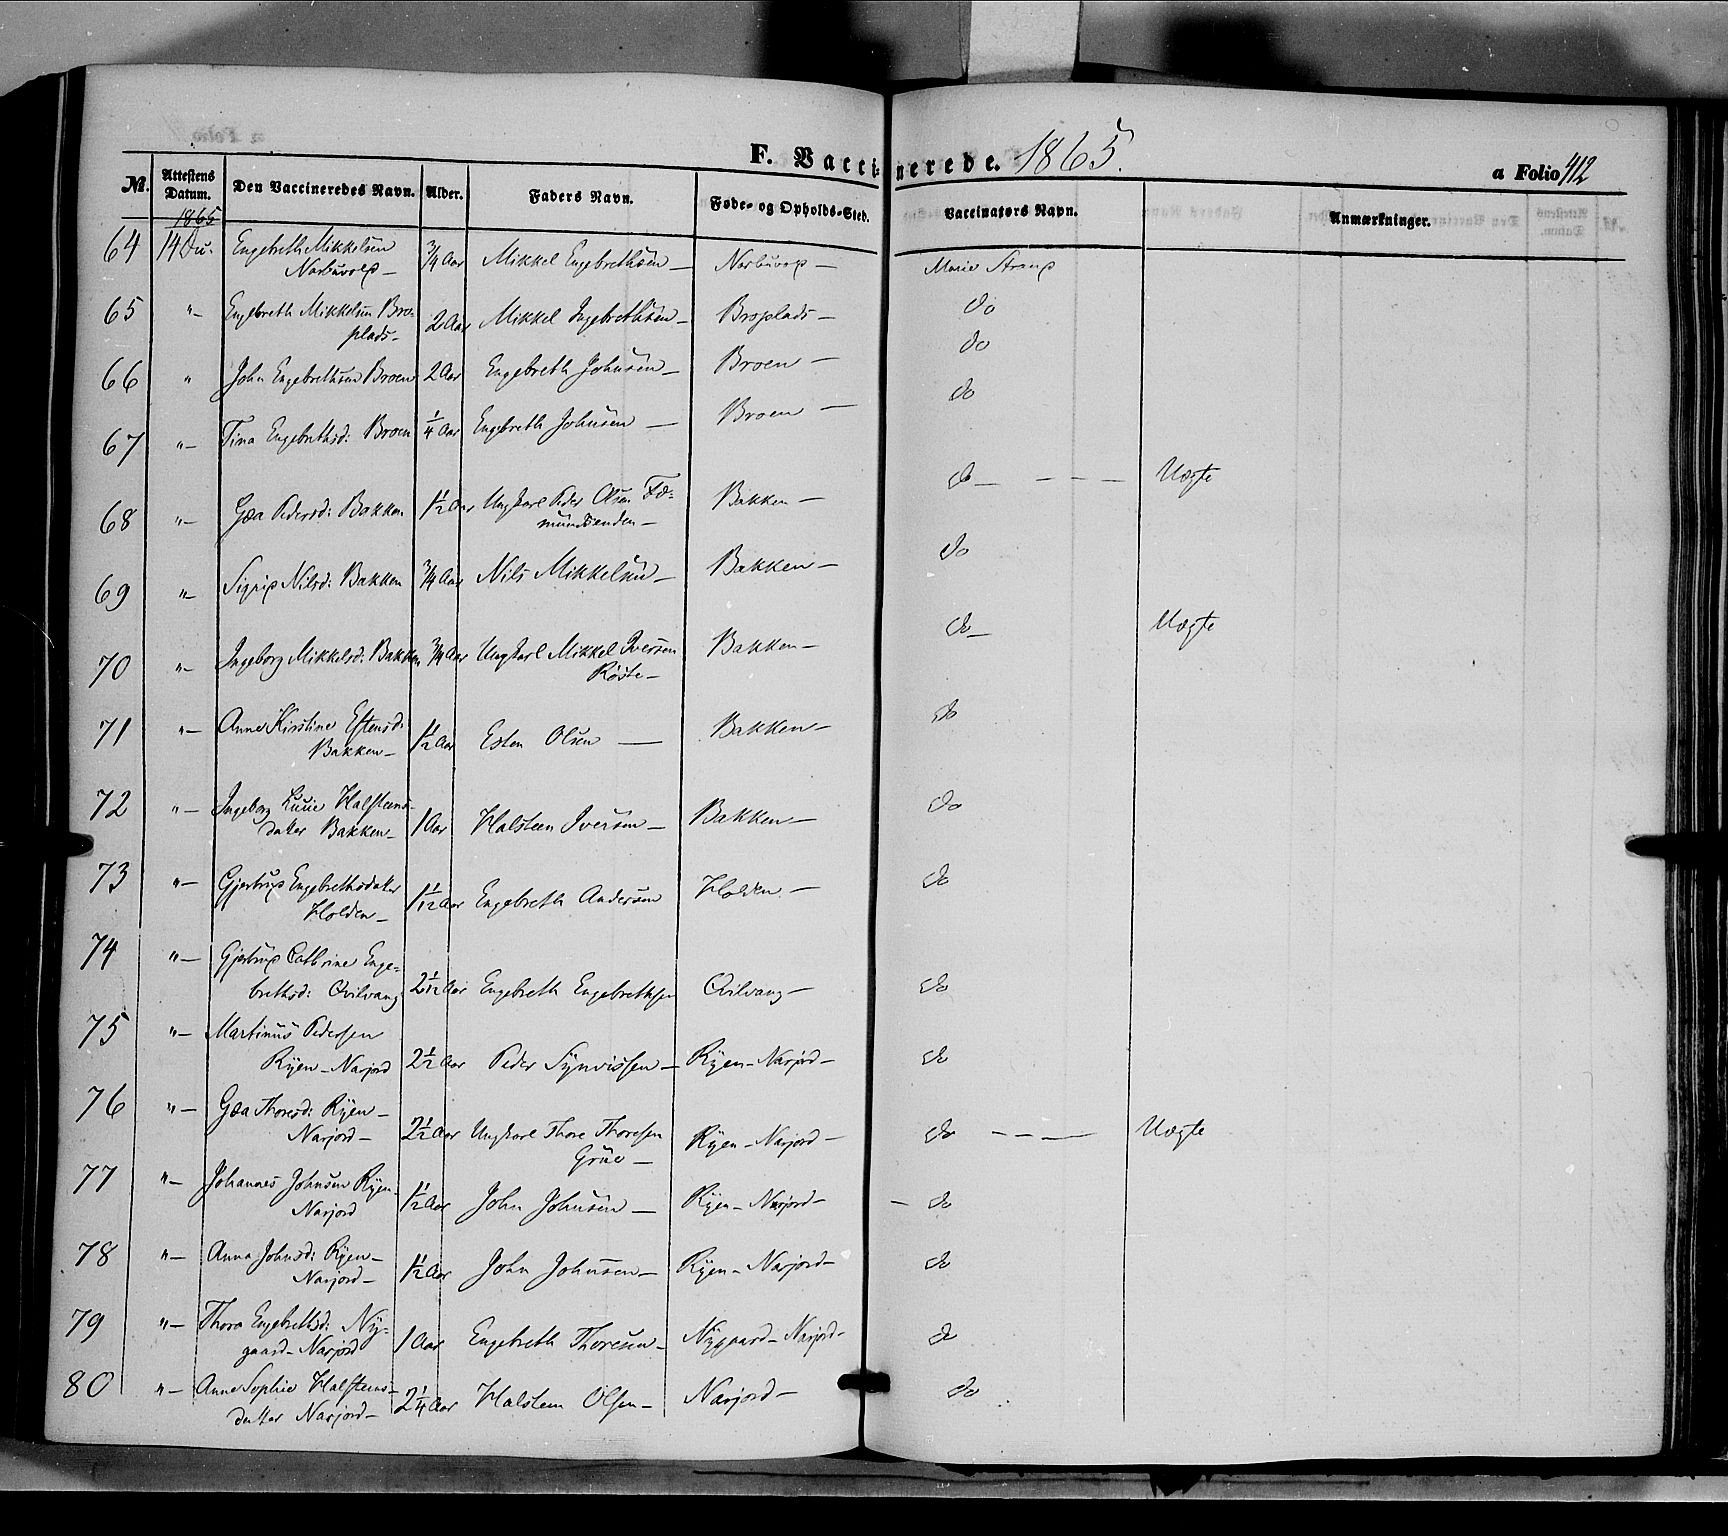 F. Vaccinerede. 1865.
a Folio 412
№. Attestens Datum. Den Vaccineredes Navn. Alder. Faders Navn. Føde- og Opholds-Sted. Vaccinatørs Navn. Anmærkninger.
1865
64 14 Engebreth Mikkelsen ¾ Aar Mikkel Engebrethsen — Narbuvold — Marie Strand
Narbuvold —
65 "— Engebreth Mikkelsen Bro- 2 Aar Mikkel Ingebrethsen — Broplads — do
plads —
66 " John Engebrethsen Broen 2 Aar Engebreth Johnsen — Broen — do
67 "— Tina Engebrethsd: Broen ¼ Aar Engebreth Johnsen — Broen — do
68 "— Goa Pedersd: Bakken 1½ Aar Ungkarl Peder Olsen Fæ- Bakken — do — — — — Uægte
mundsenden —
69 "— Sigrid Nilsd: Bakken ¾ Aar Nils Mikkelsen — Bakken — do
70 "— Ingeborg Mikkelsd: Bakken ¾ Aar Ungkarl Mikkel Iversen Bakken — do — Uægte
Røste —
71 "— Anne Kirstine Estensd: 1½ Aar Esten Olsen — Bakken — do
Bakken —
72 "— Ingeborg Lusie Halsteens- 1 Aar Halsteen Iversen — Bakken — do
datter Bakken —
73 "— Gjertrud Engebrethsdatter 1 1/12 Aar Engebreth Andersen Holden — do
Holden —
74 "— Gjertrud Cathrine Enge-
brethsd: Qvilvang 2 1/12 Aar Engebreth Engebrethsen Qvilvang — do
75 "— Martinus Pedersen
Ryen — Narjord 2½ Aar Peder Synvissen — Ryen — Narjord — do
76 "— Goa Thoresd: Ryen —
Narjord — 2½ Aar Ungkarl Thore Thoresen Ryen — Narjord — do — — — Uægte
Grue —
77 "— Johannes Johnsen Ryen- 1½ Aar John Johnsen — Ryen — Narjord — — do
Narjord
78 "— Anna Johnsd: Ryen — 1½ Aar John Johnsen — Ryen — Narjord — do
Narjord —
79 "— Thora Engebrethsd: Ny- 1 Aar Engebreth Thoresen — Nygaard — Narjord — do
gaard — Narjord
80 "— Anne Sophie Halsteens- 2¼ Aar Halsteen Olsen — Narjord — do
datter Narjord —